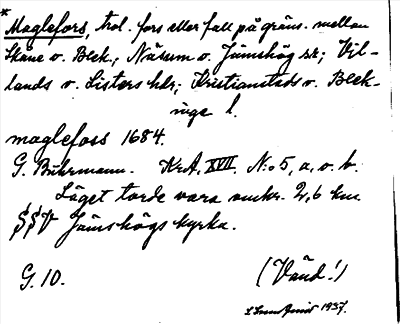 * Maglefors, trol. fors eller fall på gräns. mellan
Skåne o. Blek., Näsum o. Jämshög sk; Vil-
lands o. Listers hdr; Kristianstads o. Blek-
inge l.
maglefoss 1684.
G. Buhrmann. KrA, XVII. N:o 5, a, o. b.
Läget torde vara omkr. 2,6 km
SSV Jämshögs kyrka.
G. 10. (Vänd!)
1937.